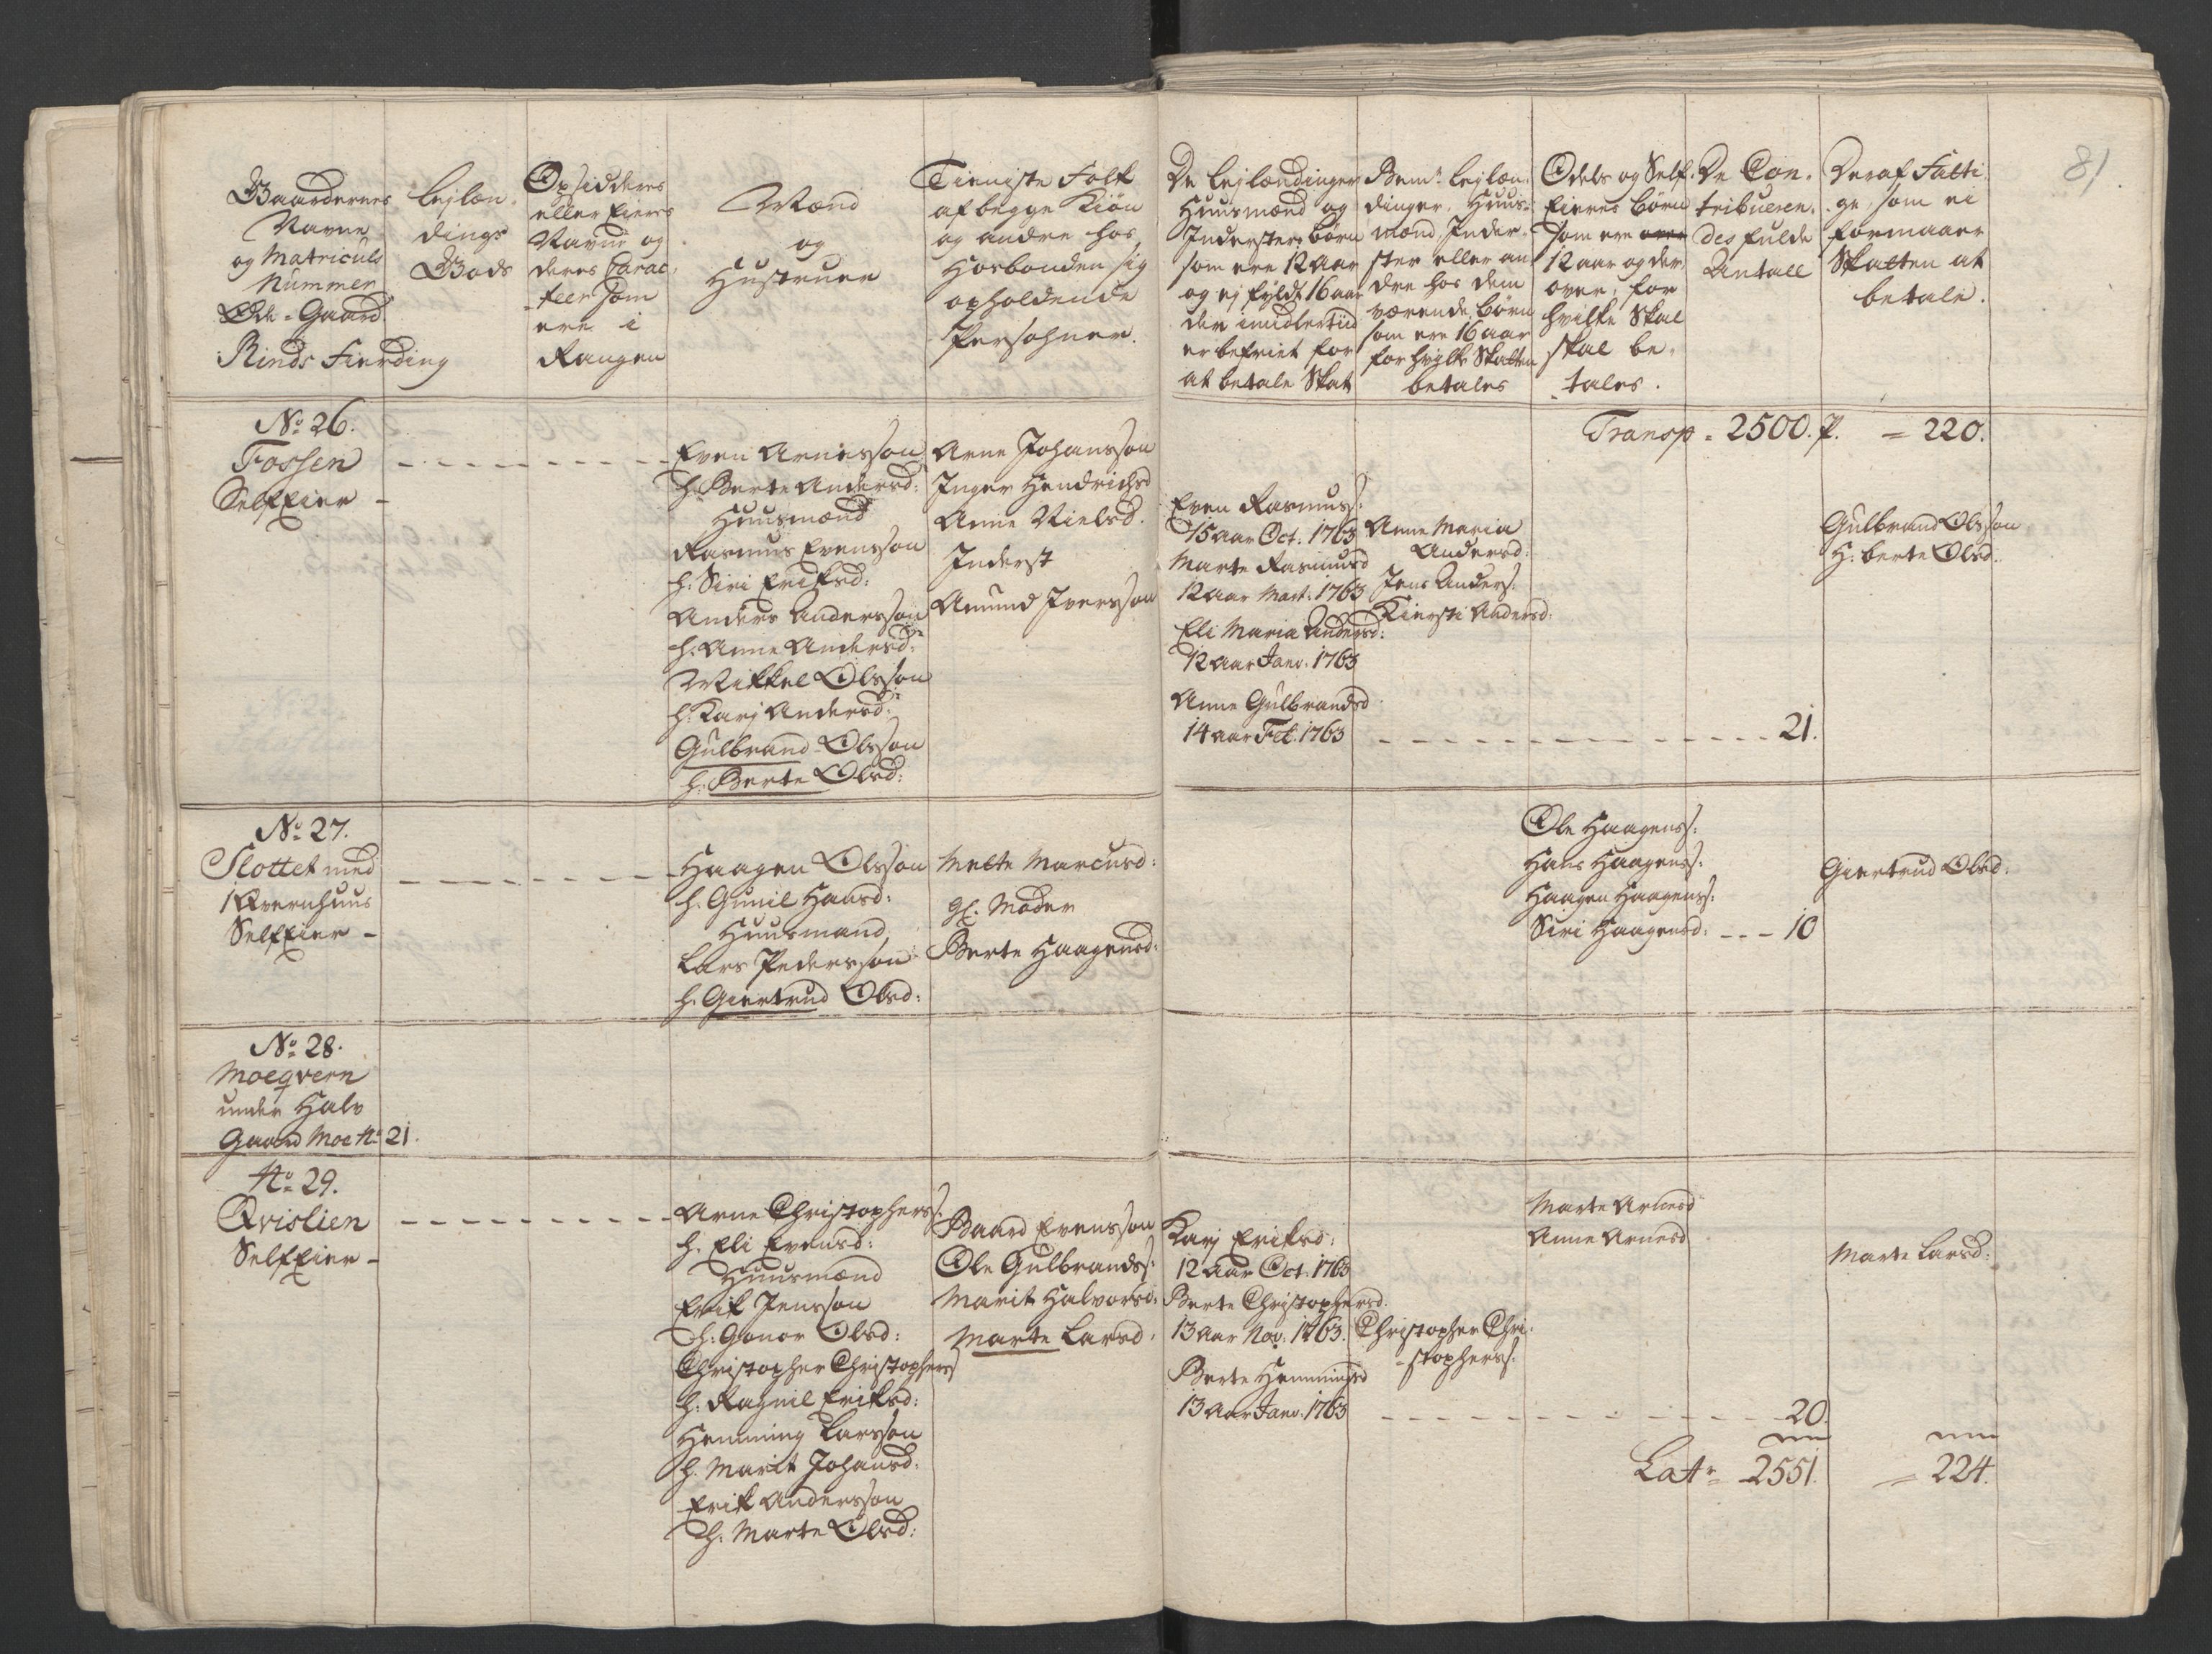 81.
Gaardernes
Navne
og Matriculs
Nummer
Øde-Gaard.
Rinds Fierding
Lejlæn-
dings
Gods
Opsidderes
eller Eieres
Navne og
deres Carac-
teer som
ere i
Rangen
Mænd
og
Hustruer
Tieniste Folk
af begge Kiøn
og andre hos
Hosbonden sig
opholdende
Persohner.
De Lejlændinger
Huusmænd og
Inderster Børn
som ere 12 Aar
og ej fyldt 16 aar
der imidlertiid
er befriet for
at betale Skat
Bemte Lejlæn-
dinger, Huus-
mænd Inder-
ster eller an
dre hos dem
værende Børn
som ere 16 aar
for hvilke Skatten
betales
Odels og Self-
Eieres Børn
som ere over
12 aar og der
over, for
hvilke Skat
skal be-
tales.
De Con-
tribueren-
des fulde
Antall
Deraf Fatti-
ge, som ei
formaaer
Skatten at
betale.
Transp = 2500. P. = 220.
No 26.
Fossen
SelfEier -
Even Arnesson
h. Berte Andersd:
Huusmænd
Rasmus Evensson
h. Siri Eriksd:
Anders Andersson
h. Anne Andersd:
Mikkel Olsson
h. Karj Andersd:
Gulbrand Olsson
h. Berte Olsd:
Arne Johansson
Inger Hendrichsd
Anne Nielsd.
Inderst
Amund Iversson
Even Rasmuss:
15 aar Oct. 1763
Marte Rasmusd
12 aar Mart. 1763
Eli Maria Andersd:
12 aar Janv. 1763
Anne Gulbrandsd
14 aar Feb. 1763
Anne Maria
Andersd:
Jens Anders:
Kiersti Andersd:
21.
Gulbrand Olsson
H. berte Olsd.
No 27.
Slottet med
1 Qvernhuus
SelfEier -
Haagen Olsson
h. Gunil Hansd:
Huusmand,
Lars Pedersson
h. Giertrud Olsd:
Mette Marcusd:
gl. Moder
Berte Haagensd:
Ole Haagens:
Hans Haagens:
Haagen Haagens:
Siri Haagensd: - - - 10
Giertrud Olsd:
No 28.
Moeqvern
under Halv
Gaard Moe No 21.
No 29.
Qvislien
SelfEier -
Arne Christophers:
h. Eli Evensd:
Huusmænd
Erik Jensson
h. Gonor Olsd:
Christopher Christophers
h. Ragnil Eriksd:
Hemming Larsson
h. Marit Johansd:
Erik Andersson
h. Marte Olsd:
Baard Evensson
Ole Gulbrands:
Marit Halvorsd:
Marte Larsd:
Karj Eriksd:
12 aar Oct. 1763
Berte Christophersd.
13 aar Nov. 1763.
Berte Hemmingsd
13 aar Janv. 1763
Christopher Chri-
stophers:
Marte Arnesd
Anne Arnesd
20.
Marte Larsd:
Latr = 2551. = 224.